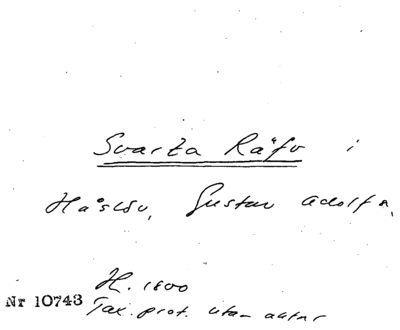 Svarta Räfv i
Håslöv, Gustav Adolfs,
H. 1800
Nr 10743 Tax. prot. utan antnr